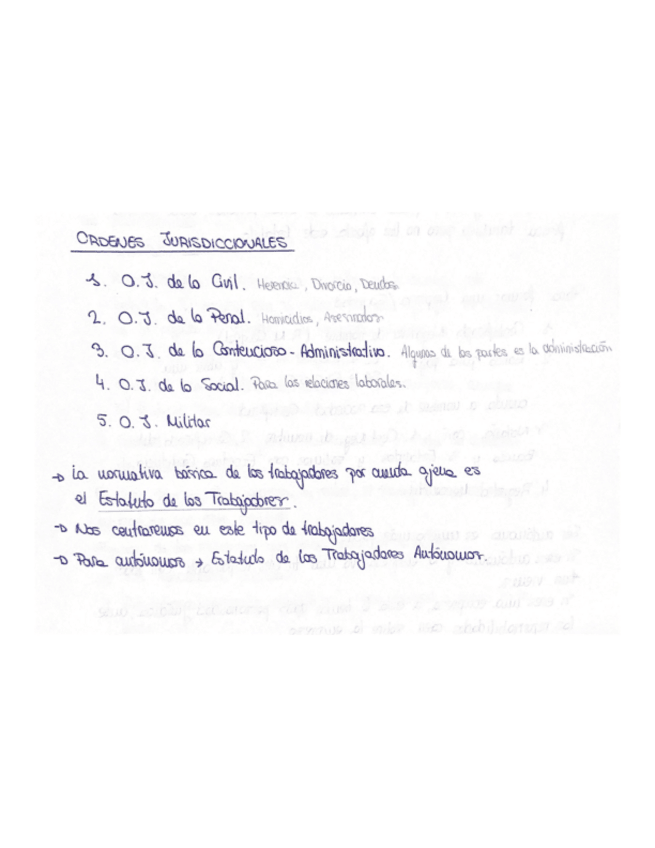 ORDENES JURISDICCIONALES
1. O.J. de lo Civil. Herencia, Divorcio, Deudas.
2. O.J. de lo Penal. Homicidios, Asesinatos.
3. O.J. de lo Contencioso-Administrativo. Alguna de las partes es la administración
4. O.J. de lo Social. Para las relaciones laborales.
5. O.J. Militar
→ La normativa básica de los trabajadores por cuenta ajena es
el Estatuto de los Trabajadores.
→ Nos centraremos en este tipo de trabajadores
→ Para autónomos → Estatuto de los Trabajadores Autónomos.